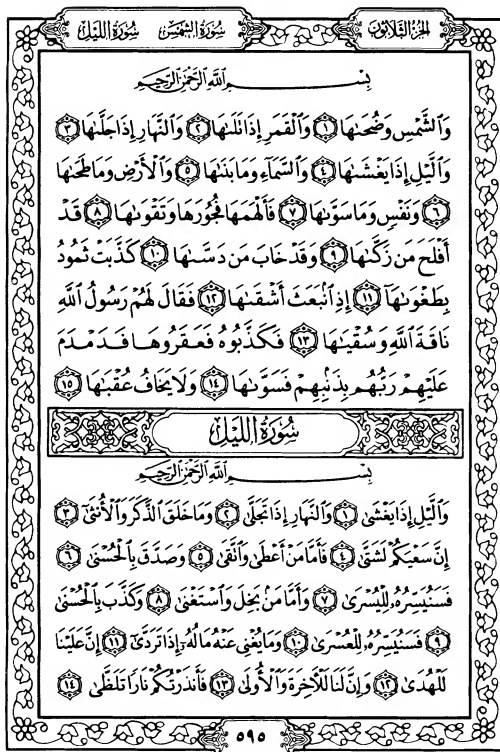 الجزء الثلاثون سورة الشمس سورة الليل
بِسْمِ اللَّهِ الرَّحْمَٰنِ الرَّحِيمِ
وَالشَّمْسِ وَضُحَىٰهَا ١ وَالْقَمَرِ إِذَا تَلَىٰهَا ٢ وَالنَّهَارِ إِذَا جَلَّىٰهَا ٣
وَالَّيْلِ إِذَا يَغْشَىٰهَا ٤ وَالسَّمَآءِ وَمَا بَنَىٰهَا ٥ وَالْأَرْضِ وَمَا طَحَىٰهَا
٦ وَنَفْسٍ وَمَا سَوَّىٰهَا ٧ فَأَلْهَمَهَا فُجُورَهَا وَتَقْوَىٰهَا ٨ قَدْ
أَفْلَحَ مَن زَكَّىٰهَا ٩ وَقَدْ خَابَ مَن دَسَّىٰهَا ١٠ كَذَّبَتْ ثَمُودُ
بِطَغْوَىٰهَآ ١١ إِذِ انۢبَعَثَ أَشْقَىٰهَا ١٢ فَقَالَ لَهُمْ رَسُولُ اللَّهِ
نَاقَةَ اللَّهِ وَسُقْيَىٰهَا ١٣ فَكَذَّبُوهُ فَعَقَرُوهَا فَدَمْدَمَ
عَلَيْهِمْ رَبُّهُم بِذَنۢبِهِمْ فَسَوَّىٰهَا ١٤ وَلَا يَخَافُ عُقْبَىٰهَا ١٥
سُورَةُ اللَّيْلِ
بِسْمِ اللَّهِ الرَّحْمَٰنِ الرَّحِيمِ
وَالَّيْلِ إِذَا يَغْشَىٰ ١ وَالنَّهَارِ إِذَا تَجَلَّىٰ ٢ وَمَا خَلَقَ الذَّكَرَ وَالْأُنثَىٰٓ ٣
إِنَّ سَعْيَكُمْ لَشَتَّىٰ ٤ فَأَمَّا مَنْ أَعْطَىٰ وَاتَّقَىٰ ٥ وَصَدَّقَ بِالْحُسْنَىٰ ٦
فَسَنُيَسِّرُهُۥ لِلْيُسْرَىٰ ٧ وَأَمَّا مَنۢ بَخِلَ وَاسْتَغْنَىٰ ٨ وَكَذَّبَ بِالْحُسْنَىٰ
٩ فَسَنُيَسِّرُهُۥ لِلْعُسْرَىٰ ١٠ وَمَا يُغْنِي عَنْهُ مَالُهُۥٓ إِذَا تَرَدَّىٰٓ ١١ إِنَّ عَلَيْنَا
لَلْهُدَىٰ ١٢ وَإِنَّ لَنَا لَلْآخِرَةَ وَالْأُولَىٰ ١٣ فَأَنذَرْتُكُمْ نَارًا تَلَظَّىٰ ١٤
٥٩٥